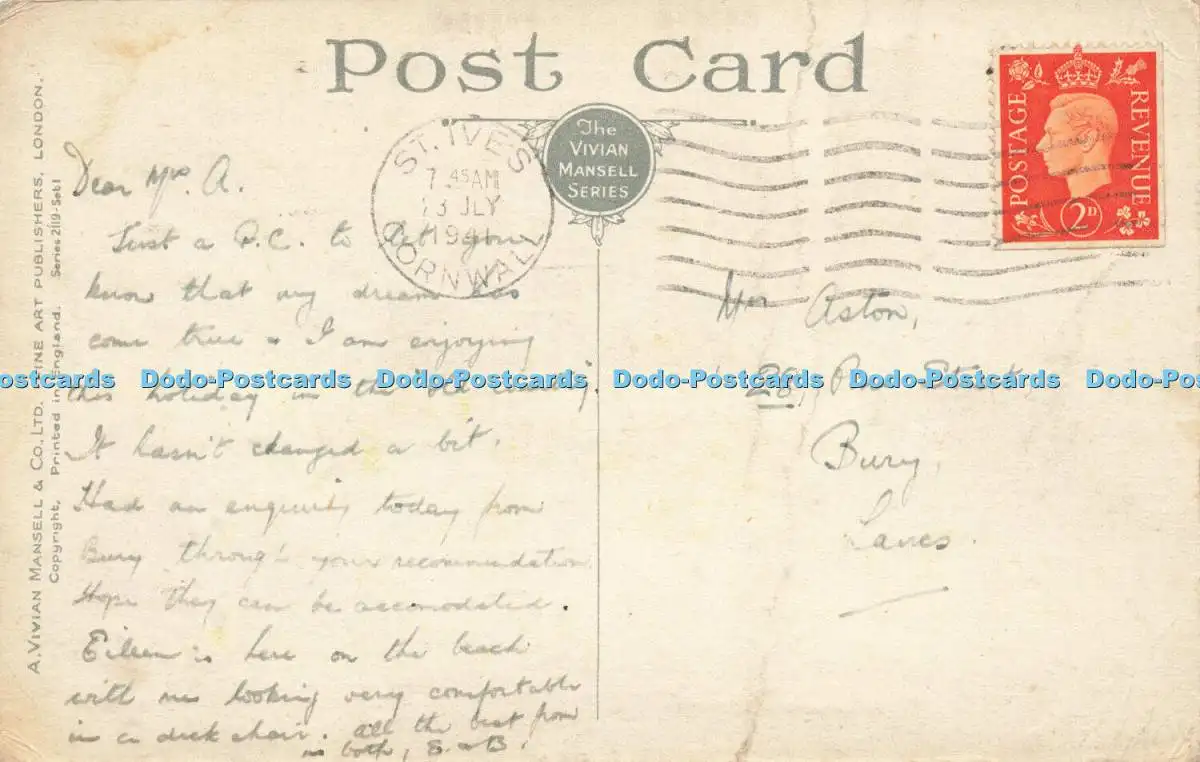 Post Card
The
VIVIAN
MANSELL
SERIES
A. VIVIAN MANSELL & CO. LTD. FINE ART PUBLISHERS, LONDON.
Copyright. Printed in England. Series 2119-Set 1
ST. IVES
7 45AM
JLY
1941
CORNWALL
POSTAGE
REVENUE
2D
Dear Mrs A.
Just a P.C. to let you
know that my dream has
come true & I am enjoying
this holiday in the
It hasn't changed a bit.
Had an enquiry today from
Bury through your recommendation
Hope they can be accomodated.
Eileen is here on the beach
with me looking very comfortable
in a deck chair. All the best from
us both, E. & B.
Mrs Aston,
28,
Bury,
Lancs.
Dodo-Postcards Dodo-Postcards Dodo-Postcards Dodo-Postcards Dodo-Postcards Dodo-Postcards